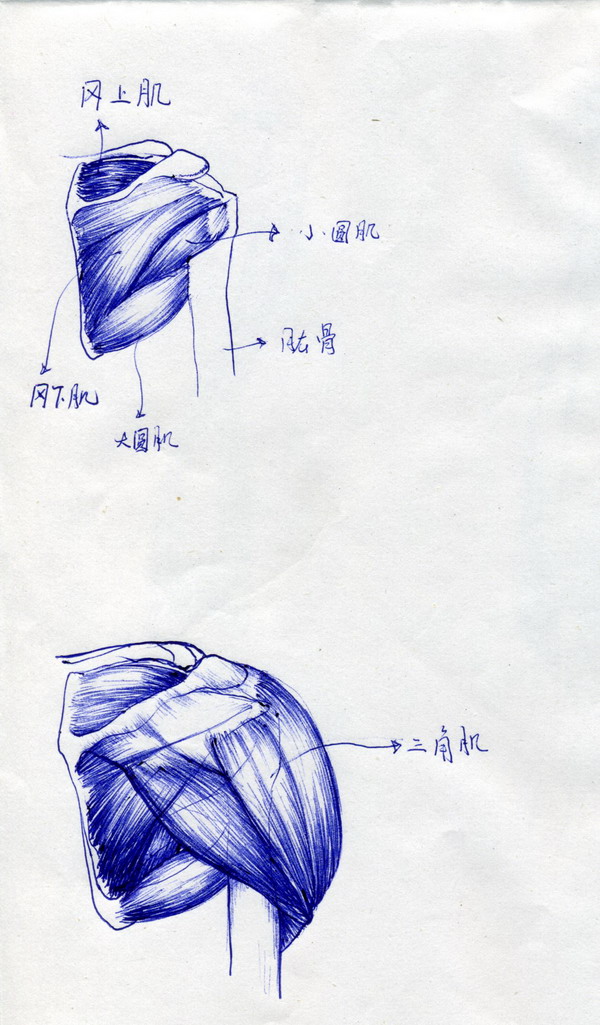 冈上肌
小圆肌
肱骨
冈下肌
大圆肌
三角肌